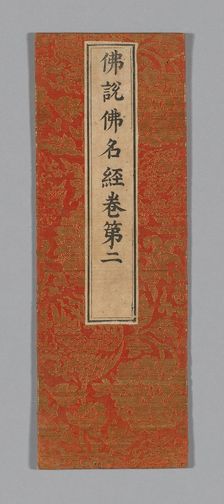 佛說佛名經卷第二